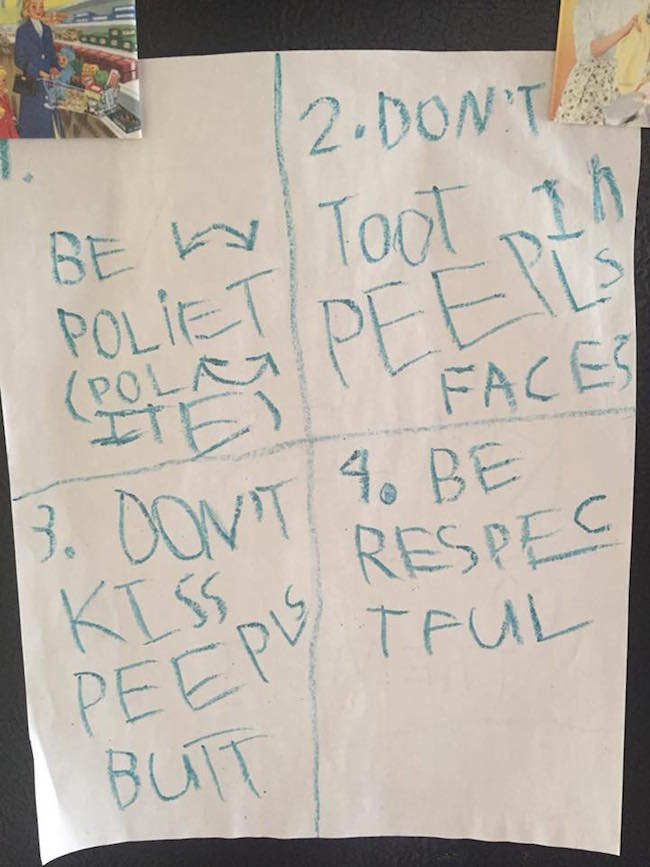 1.
BE
POLIET
(POL
ITE)
2. DON'T
TOOT IN
PEEPLS
FACES
3. DON'T
KISS
PEEPLS
BUTT
4. BE
RESPEC
TFUL